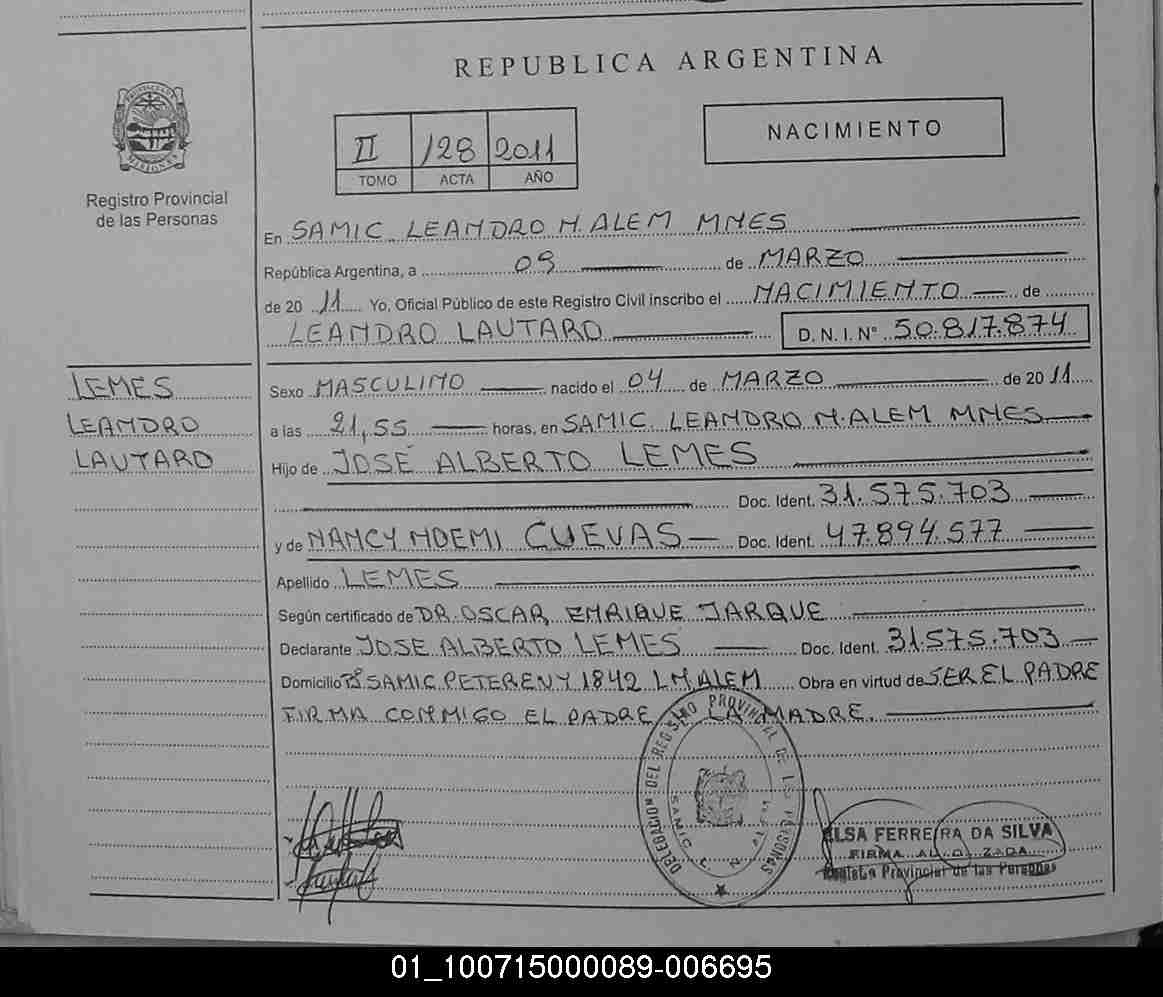 REPUBLICA ARGENTINA
PROVINCIA DE MISIONES
Registro Provincial
de las Personas
II 128 2011
TOMO ACTA AÑO
NACIMIENTO
En SAMIC LEANDRO N. ALEM MNES
República Argentina, a 09 de MARZO
de 20 11 Yo, Oficial Público de este Registro Civil inscribo el NACIMIENTO de
LEANDRO LAUTARO D. N. I. N° 50.817.874
LEMES
LEANDRO
LAUTARO
Sexo MASCULINO nacido el 04 de MARZO de 20 11
a las 21,55 horas, en SAMIC LEANDRO N. ALEM MNES
Hijo de JOSÉ ALBERTO LEMES
Doc. Ident. 31.575.703
y de NANCY NOEMI CUEVAS Doc. Ident. 47.894.577
Apellido LEMES
Según certificado de DR. OSCAR ENRIQUE JARQUE
Declarante JOSE ALBERTO LEMES Doc. Ident. 31.575.703
Domicilio Bº SAMIC PETERENY 1842 L N ALEM Obra en virtud de SER EL PADRE
FIRMA CONMIGO EL PADRE Y LA MADRE.
DELEGACION DEL REGISTRO PROVINCIAL DE LAS PERSONAS
SAMIC L. N.
ELSA FERREIRA DA SILVA
FIRMA AUTORIZADA
Registro Provincial de las Personas
01_100715000089-006695